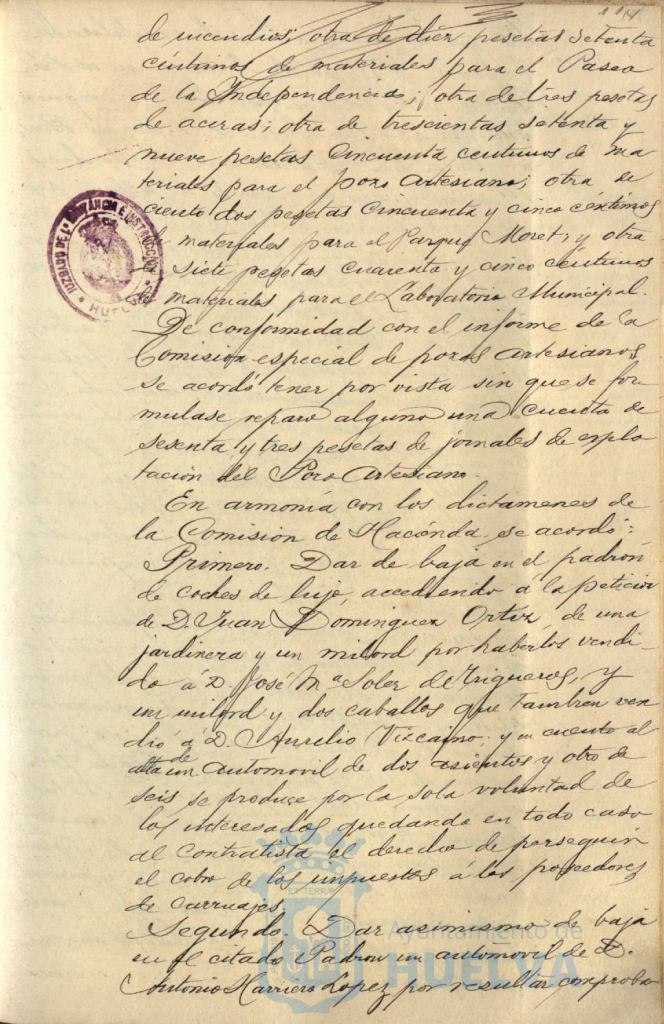 114
de incendios; otra de diez pesetas setenta
céntimos de materiales para el Paseo
de la Independencia; otra de tres pesetas
de aceras; otra de trescientas setenta y
nueve pesetas cincuenta centimos de ma
teriales para el pozo artesiano; otra de
ciento dos pesetas cincuenta y cinco céntimos
de materiales para el Parque Moret; y otra
siete pesetas cuarenta y cinco centimos
materiales para el Laboratorio Municipal.
De conformidad con el informe de la
Comision especial de pozos artesianos,
se acordó tener por vista sin que se for
mulase reparo alguno una cuenta de
sesenta y tres pesetas de jornales de explo
tación del Pozo Artesiano.
En armonía con los dictamenes de
la Comision de Hacienda, se acordó:
Primero. Dar de baja en el padrón
de coches de lujo, accediendo a la peticion
de D. Juan Dominguez Ortiz, de una
jardinera y un milord por haberlos vendi-
do á D. José Mª Soler de Trigueros, y
un milord y dos caballos que tambien ven
dió á D. Aurelio Vizcaino: y en cuento al
alta de un automovil de dos asientos y otro de
seis se produce por la sola voluntad de
los interesados, quedando en todo caso
al contratista el derecho de perseguir
el cobro de los impuestos á los poseedores
de carruajes.
Segundo. Dar asimismo de baja
en el citado Padron un automovil de D.
Antonio Harriero Lopez por resultar comproba
JUZGADO DE 1ª INSTANCIA E INSTRUCCION
HUELVA
Ayuntamiento de
HUELVA